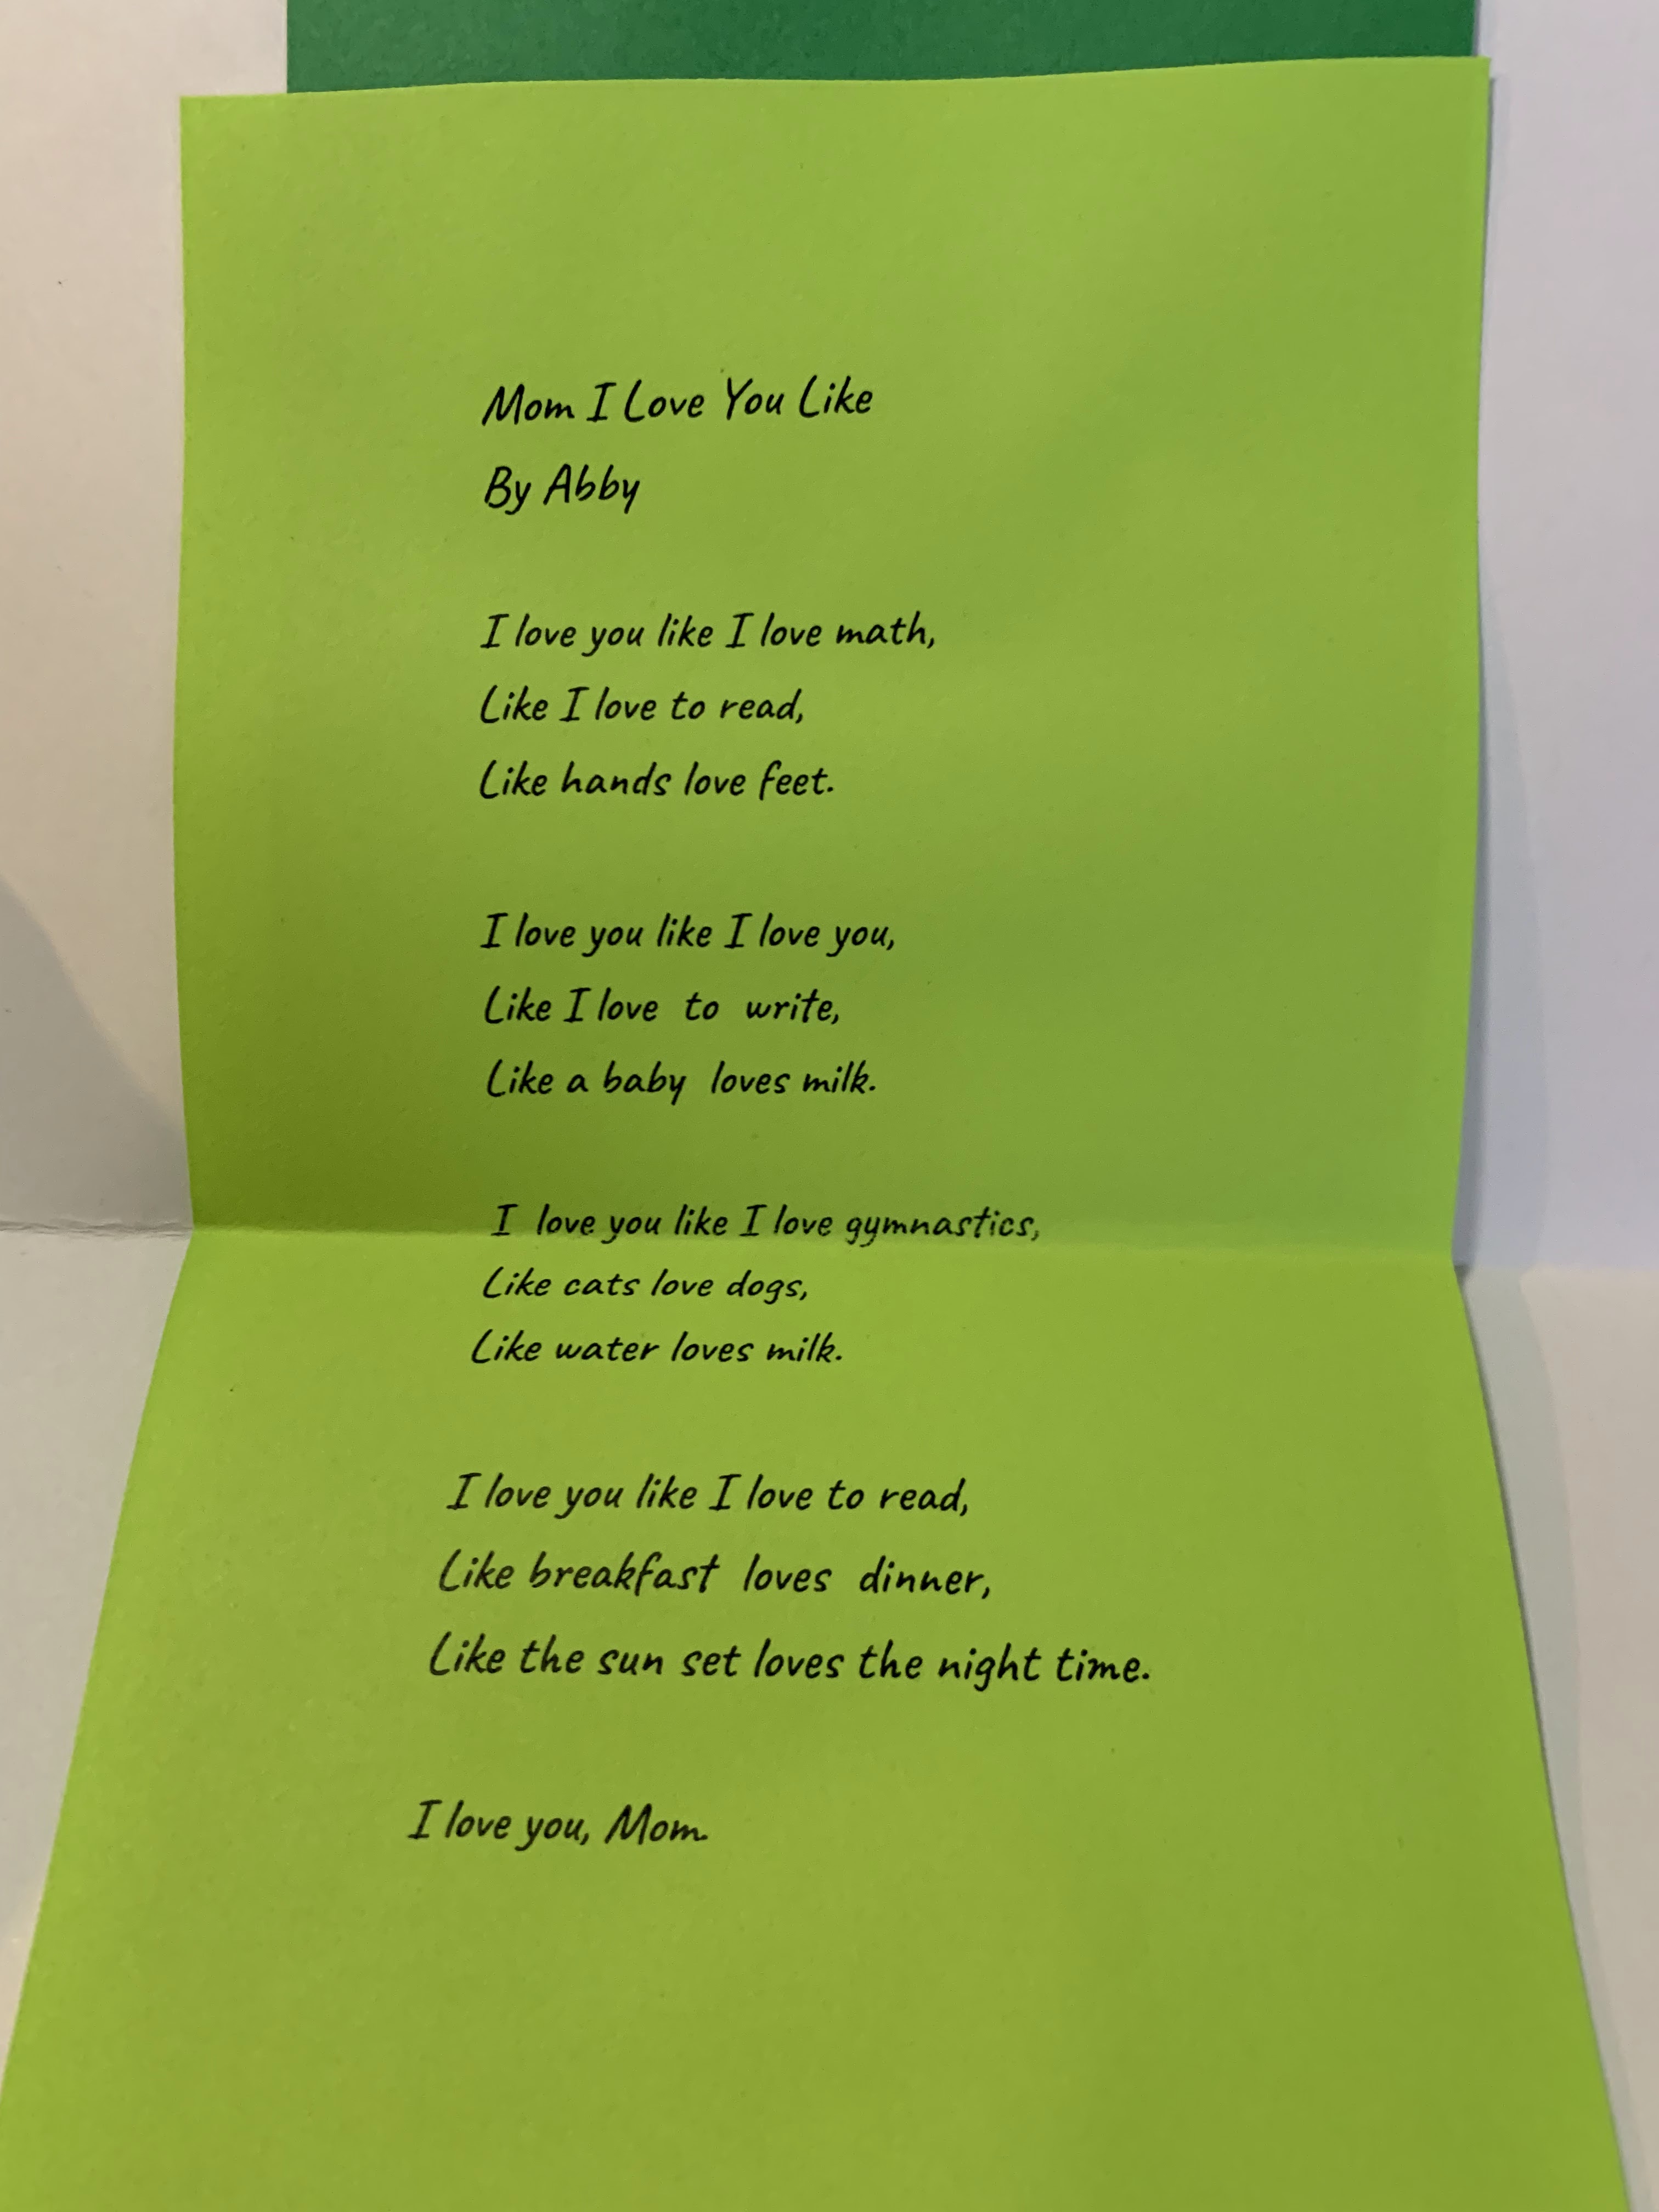 Mom I Love You Like
By Abby
I love you like I love math,
Like I love to read,
Like hands love feet.
I love you like I love you,
Like I love to write,
Like a baby loves milk.
I love you like I love gymnastics,
Like cats love dogs,
Like water loves milk.
I love you like I love to read,
Like breakfast loves dinner,
Like the sun set loves the night time.
I love you, Mom.